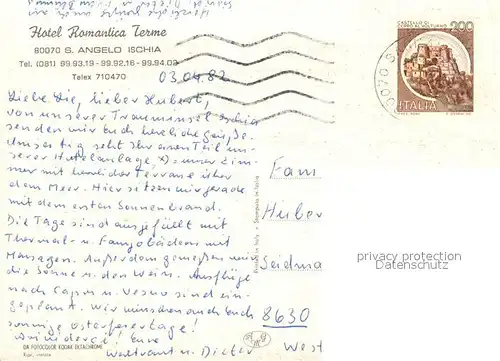 Hotel Romantica Terme
80070 S. ANGELO ISCHIA
Tel. (081) 99.93.19 - 99.92.16 - 99.94.02
Telex 710470
03.04.82
CASTELLO DI
CERRO AL VOLTURNO 200
ITALIA
Liebe Die, lieber Hubert,
von unserer Trauminsel Ischia
senden wir Euch herzliche Grüße.
Umseitig seht Ihr einen Teil un-
serer Hotelanlage, x) = unser Zim-
mer mit herrlicher Terrasse über
dem Meer. Hier sitzen wir gerade
mit dem ersten Sonnenbrand.
Die Tage sind ausgefüllt mit
Thermal- u. Fangobädern mit
Massagen. Außerdem genießen wir
die Sonne u. den Wein. Ausflüge
nach Capri u. Vesuv sind ein-
geplant. Wir wünschen auch Euch
sonnige Osterfeiertage!
Eure
Waltraut u. Dieter
Fam
Huber
8630
West
privacy protection
Datenschutz
Printed in Italy - Stampato in Italia
DA FOTOCOLOR KODAK EKTACHROME